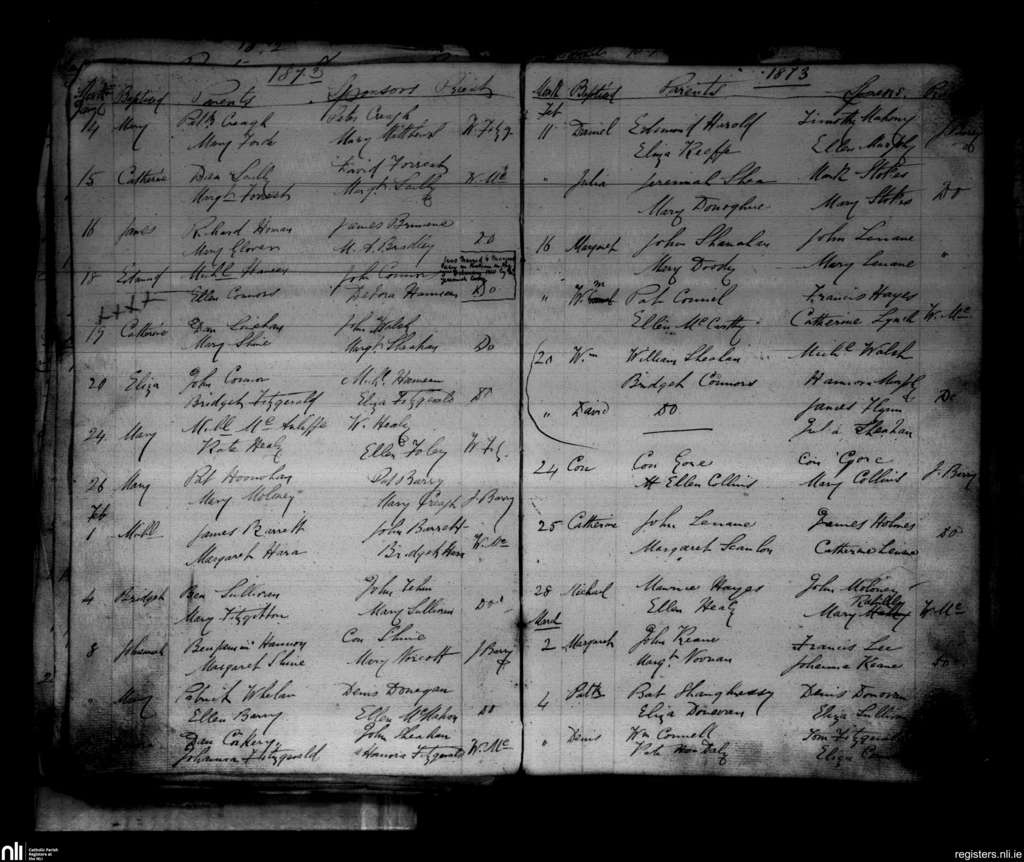 1873
Month Baptised Parents Sponsors Priest
14 Mary Patk Creagh Patk Creagh W. Fitzg.
Mary Forde Mary Matthews
15 Catherine Den Scully David Forrest W. Mc
Margt Forrest Margt Scully
16 James Richard Honan James Do
Mary Glovern M. A. Bradley
18 Edmund Michl Hanson John Connors
Ellen Connors Debora Hanson Do
19 Catherine Dan Linehan John Walsh
Mary Shine Margt Sheahan Do
20 Eliza John Connor Michl Hanson
Bridget Fitzgerald Eliza Fitzgerald Do
24 Mary Michl McAuliffe W. Healy
Kate Healy Ellen Foley W. Fitz
26 Mary Pat Hoonohan Pat Barry
Mary Moloney Mary Creagh J Barry
Feb
1 Michl James Barrett John Barrett
Margaret Hara Bridget Hara W. Mc
4 Bridget Ben Sullivan John
Mary Mary Sullivan Do
8 Johannah Benjamin Hannon Con Shine J Barry
Margaret Shine Mary Norcott
" Mary Patrick Whelan Denis Donegan
Ellen Barry Ellen McMahon Do
Dan Corkery John Sheahan
Johanna Fitzgerald Hanora Fitzgerald W. Mc
1873
Month Baptised Parents Sponsors
Feb
11 Daniel Edmond Harold Timothy Mahony J Barry
Eliza Keeffe Ellen Murphy
" Julia Jeremiah Shea Mark Stokes
Mary Donoghue Mary Stokes Do
16 Margaret John Shanahan John Lenane
Mary Doody Mary Lenane "
" Wm Pat Connel Francis Hayes
Ellen McCarthy Catherine Lynch W. Mc
20 Wm William Sheahan Michl Walsh
Bridget Connors Do
" David Do James Flynn
Julia Sheahan
24 Con Con Gore Con Gore J. Barry
H Ellen Collins Mary Collins
25 Catherine John Lenane James Holmes Do
Margaret Scanlon Catherine Lenane
28 Michael Maurice Hayes John Moloney
Ellen Healy Mary W. Mc
March
2 Margaret John Keane Francis Lee
Margt Noonan Johanna Keane Do
4 Patk Bat Shaughnessy Denis Donovan
Eliza Donovan Eliza Sullivan
" Denis Wm Connell Tom Fitzgerald
Kate Daly Eliza
nli Catholic Parish
Registers at
the NLI
registers.nli.ie